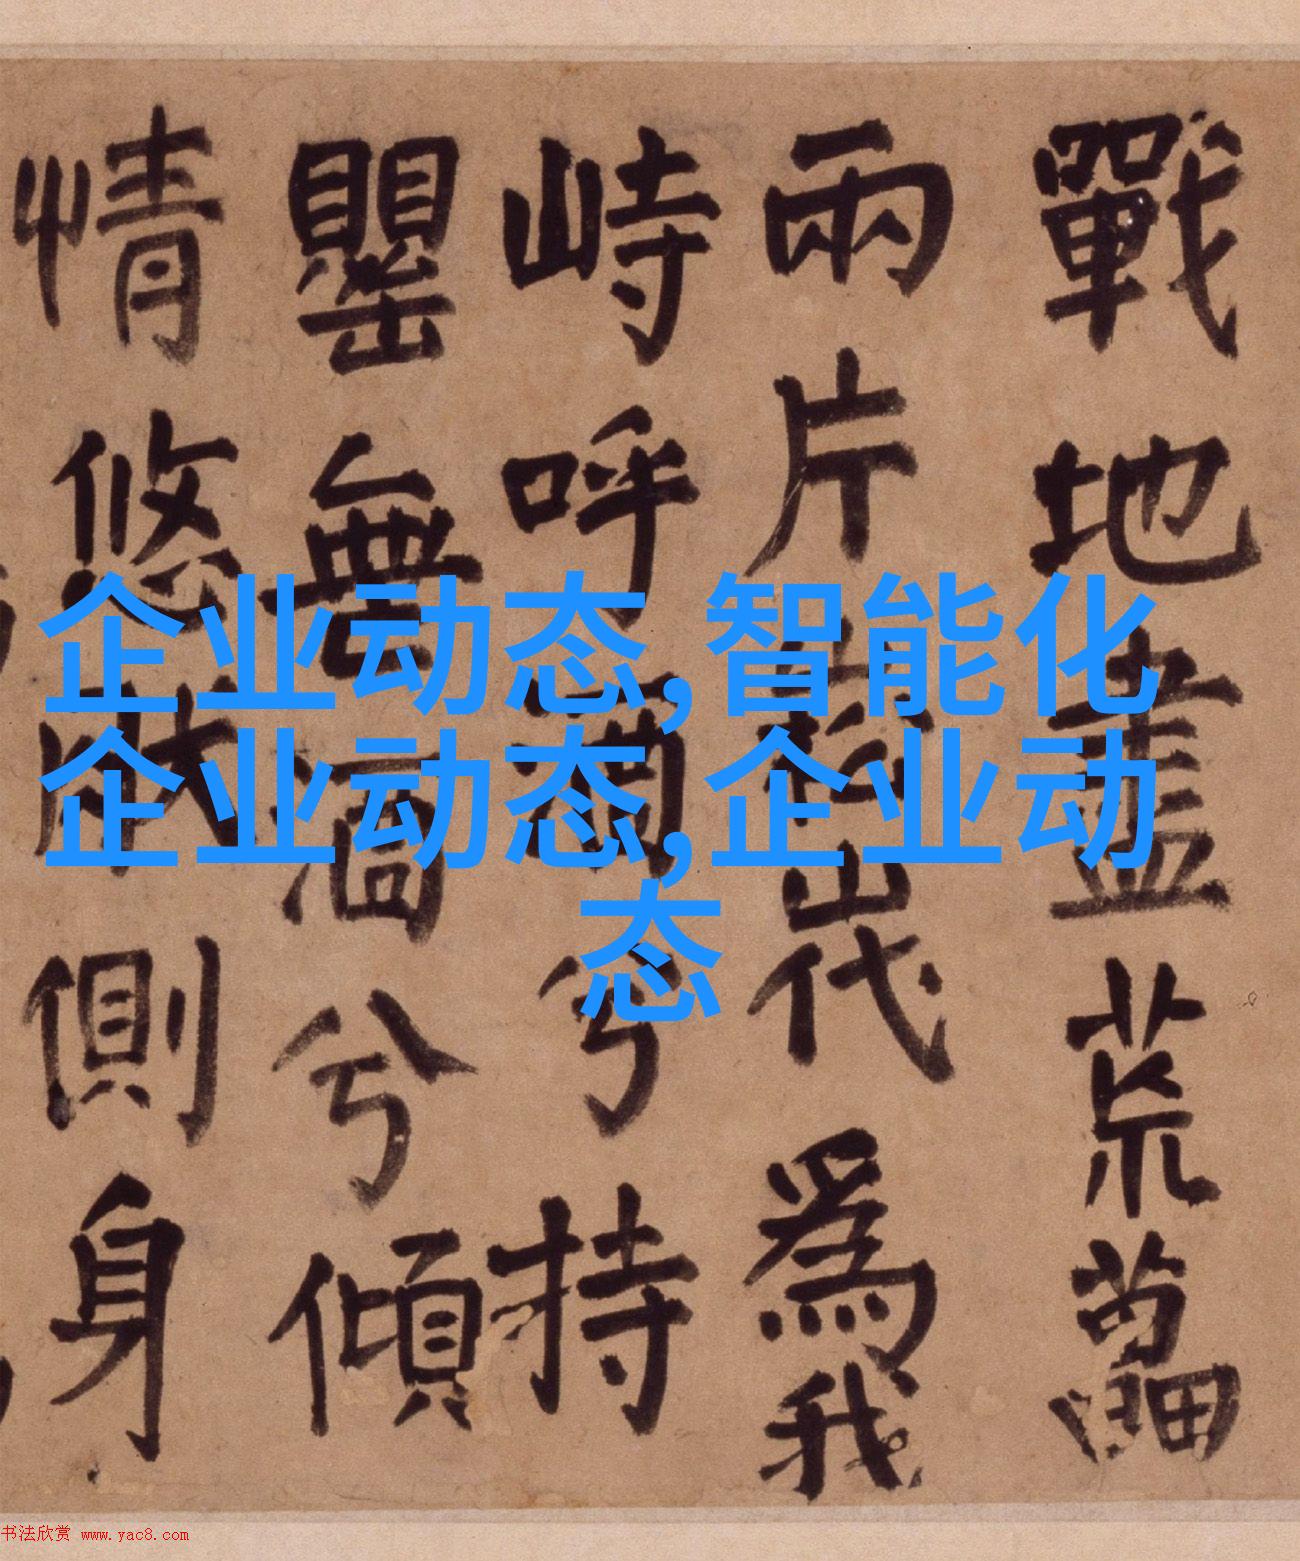 企业动态,智能化
企业动态,企业动
态
戰地盡荒
兩片為我
峙呼兮持
罌無兮傾
情悠側身
书法欣赏 www.yac8.com